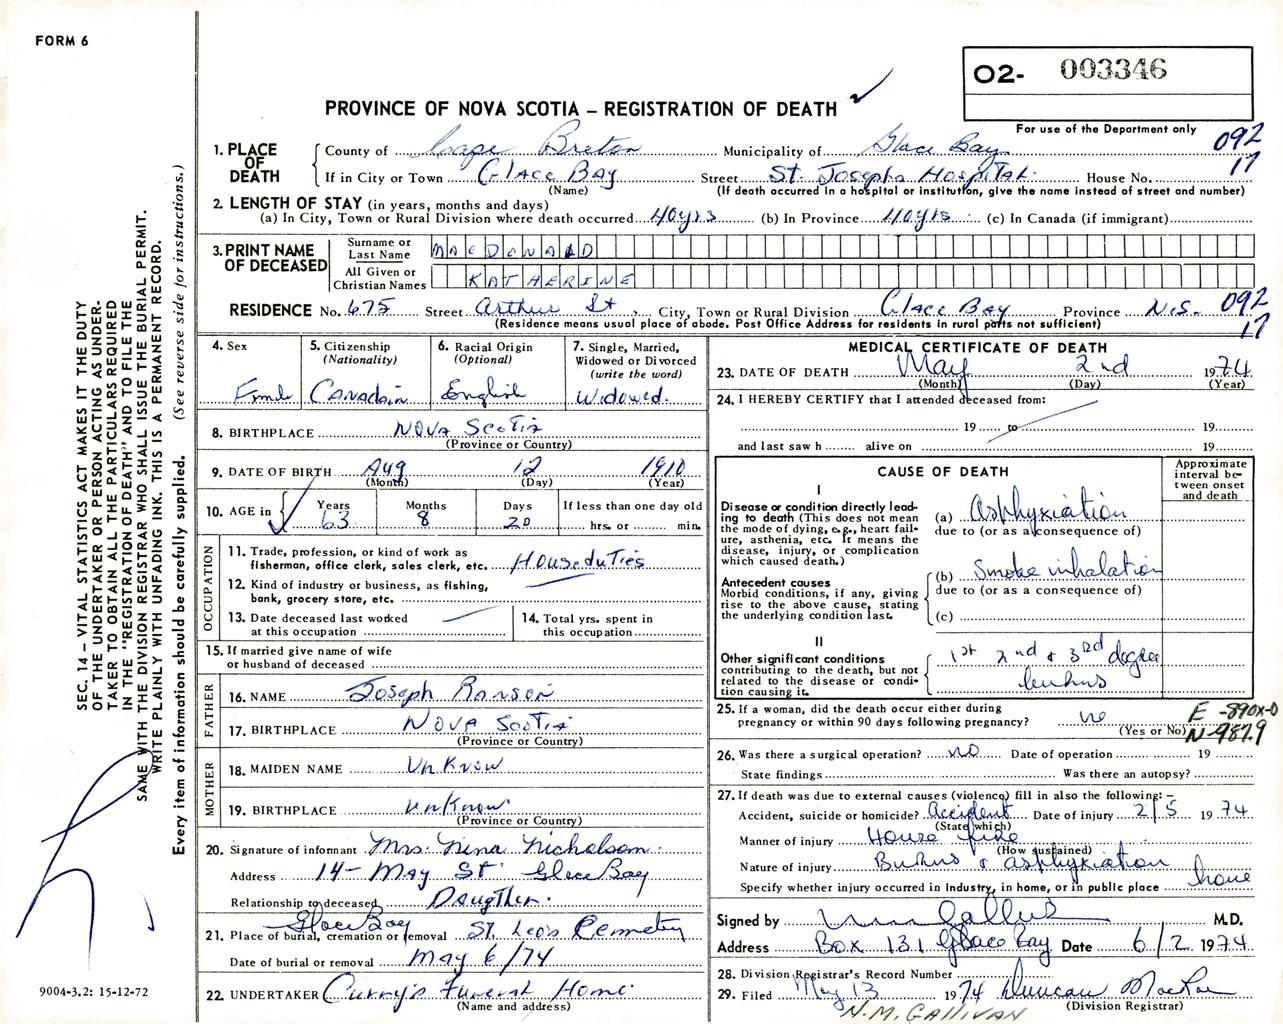 FORM 6
O2- 003346
PROVINCE OF NOVA SCOTIA – REGISTRATION OF DEATH
For use of the Department only
092
17
1. PLACE OF DEATH
County of Cape Breton Municipality of Glace Bay
If in City or Town Glace Bay Street St. Josephs Hospital House No.
(Name) (If death occurred in a hospital or institution, give the name instead of street and number)
2. LENGTH OF STAY (in years, months and days)
(a) In City, Town or Rural Division where death occurred 40 yrs (b) In Province 40 yrs (c) In Canada (if immigrant)
3. PRINT NAME OF DECEASED
Surname or Last Name MACDONALD
All Given or Christian Names KATHERINE
RESIDENCE No. 675 Street Arthur St, City, Town or Rural Division Glace Bay Province N.S. 092
17
(Residence means usual place of abode. Post Office Address for residents in rural parts not sufficient)
4. Sex
5. Citizenship (Nationality) Canadain
6. Racial Origin (Optional) English
7. Single, Married, Widowed or Divorced (write the word) Widowed.
8. BIRTHPLACE Nova Scotia
(Province or Country)
9. DATE OF BIRTH Aug 12 1910
(Month) (Day) (Year)
10. AGE in Years 63 Months 8 Days 20 If less than one day old hrs. or min.
OCCUPATION
11. Trade, profession, or kind of work as fisherman, office clerk, sales clerk, etc. Houseduties
12. Kind of industry or business, as fishing, bank, grocery store, etc.
13. Date deceased last worked at this occupation
14. Total yrs. spent in this occupation
15. If married give name of wife or husband of deceased
FATHER
16. NAME Joseph
17. BIRTHPLACE Nova Scotia
(Province or Country)
MOTHER
18. MAIDEN NAME UnKnow
19. BIRTHPLACE UnKnow
(Province or Country)
20. Signature of informant Mrs. Nina Nicholson
Address 14 - May St Glace Bay
Relationship to deceased Daugther.
Glace Bay
21. Place of burial, cremation or removal St. Leo's Cemetery
Date of burial or removal May 6/74
22. UNDERTAKER Curry's Funeral Home
(Name and address)
MEDICAL CERTIFICATE OF DEATH
23. DATE OF DEATH May 2nd 1974
(Month) (Day) (Year)
24. I HEREBY CERTIFY that I attended deceased from:
19 to 19
and last saw h alive on 19
CAUSE OF DEATH
Approximate interval between onset and death
I
Disease or condition directly leading to death (This does not mean the mode of dying, e.g., heart failure, asthenia, etc. It means the disease, injury, or complication which caused death.)
(a) Asphyxiation
due to (or as a consequence of)
Antecedent causes
Morbid conditions, if any, giving rise to the above cause, stating the underlying condition last.
(b) Smoke inhalation
due to (or as a consequence of)
(c)
II
Other significant conditions contributing to the death, but not related to the disease or condition causing it.
1st 2nd & 3rd degree
burns
25. If a woman, did the death occur either during pregnancy or within 90 days following pregnancy? no
(Yes or No)
E -890X-0
N-987.9
26. Was there a surgical operation? no Date of operation 19
State findings Was there an autopsy?
27. If death was due to external causes (violence) fill in also the following:–
Accident, suicide or homicide? Accident Date of injury 2/5 1974
(State which)
Manner of injury House fire
(How sustained)
Nature of injury Burns & asphyxiation
Specify whether injury occurred in industry, in home, or in public place home
Signed by M.D.
Address Box 131 Glace Bay Date 6/2 1974
28. Division Registrar's Record Number
29. Filed May 13 1974 Duncan
(Division Registrar)
N.M. GALLIVAN
SEC. 14 – VITAL STATISTICS ACT MAKES IT THE DUTY
OF THE UNDERTAKER OR PERSON ACTING AS UNDER-
TAKER TO OBTAIN ALL THE PARTICULARS REQUIRED
IN THE "REGISTRATION OF DEATH" AND TO FILE THE
SAME WITH THE DIVISION REGISTRAR WHO SHALL ISSUE THE BURIAL PERMIT.
WRITE PLAINLY WITH UNFADING INK. THIS IS A PERMANENT RECORD.
Every item of information should be carefully supplied. (See reverse side for instructions.)
9004-3.2: 15-12-72